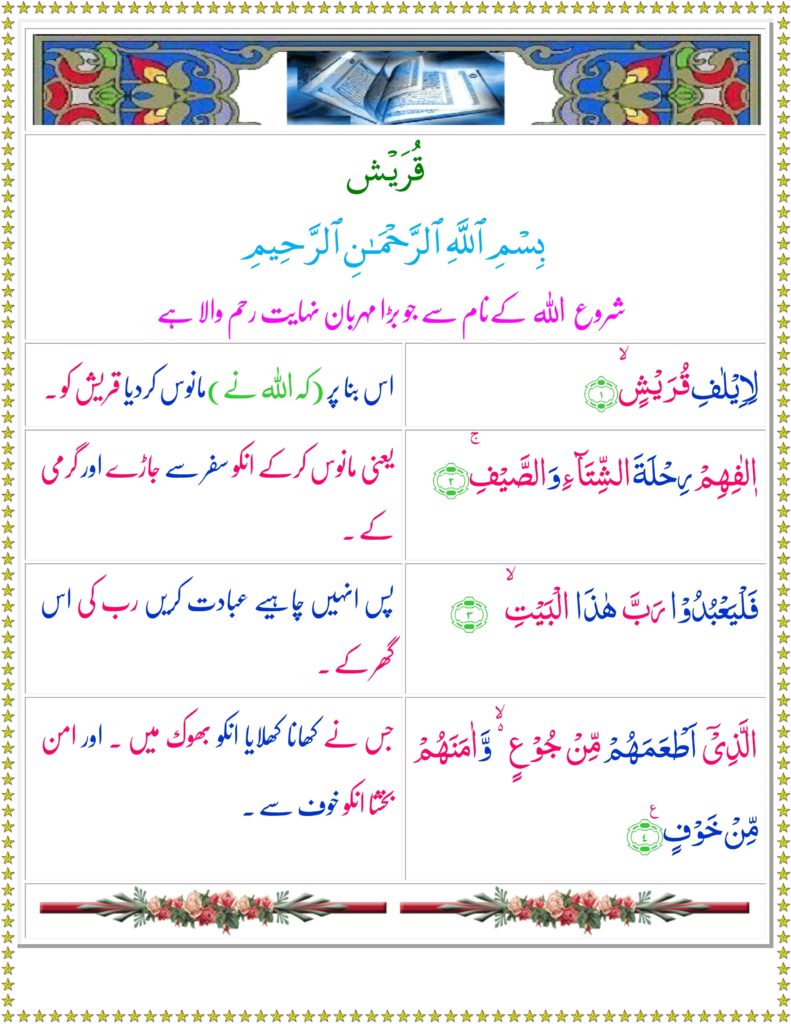 قُرَيْش
بِسْمِ ٱللَّهِ ٱلرَّحْمَـٰنِ ٱلرَّحِيمِ
شروع اللہ کے نام سے جو بڑا مہربان نہایت رحم والا ہے
لِاِيْلٰفِ قُرَيْشٍۙ ﴿١﴾
اس بنا پر (کہ اللہ نے) مانوس کردیا قریش کو۔
اٖلٰفِهِمْ رِحْلَةَ الشِّتَآءِ وَالصَّيْفِۚ ﴿٢﴾
یعنی مانوس کرکے انکو سفر سے جاڑے اور گرمی
کے ۔
فَلْيَعْبُدُوْا رَبَّ هٰذَا الْبَيْتِۙ ﴿٣﴾
پس انہیں چاہیے عبادت کریں رب کی اس
گھر کے ۔
الَّذِىْٓ اَطْعَمَهُمْ مِّنْ جُوْعٍ ۙ وَّاٰمَنَهُمْ
مِّنْ خَوْفٍ ﴿٤﴾ ع
جس نے کھانا کھلایا انکو بھوک میں ۔ اور امن
بخشا انکو خوف سے ۔